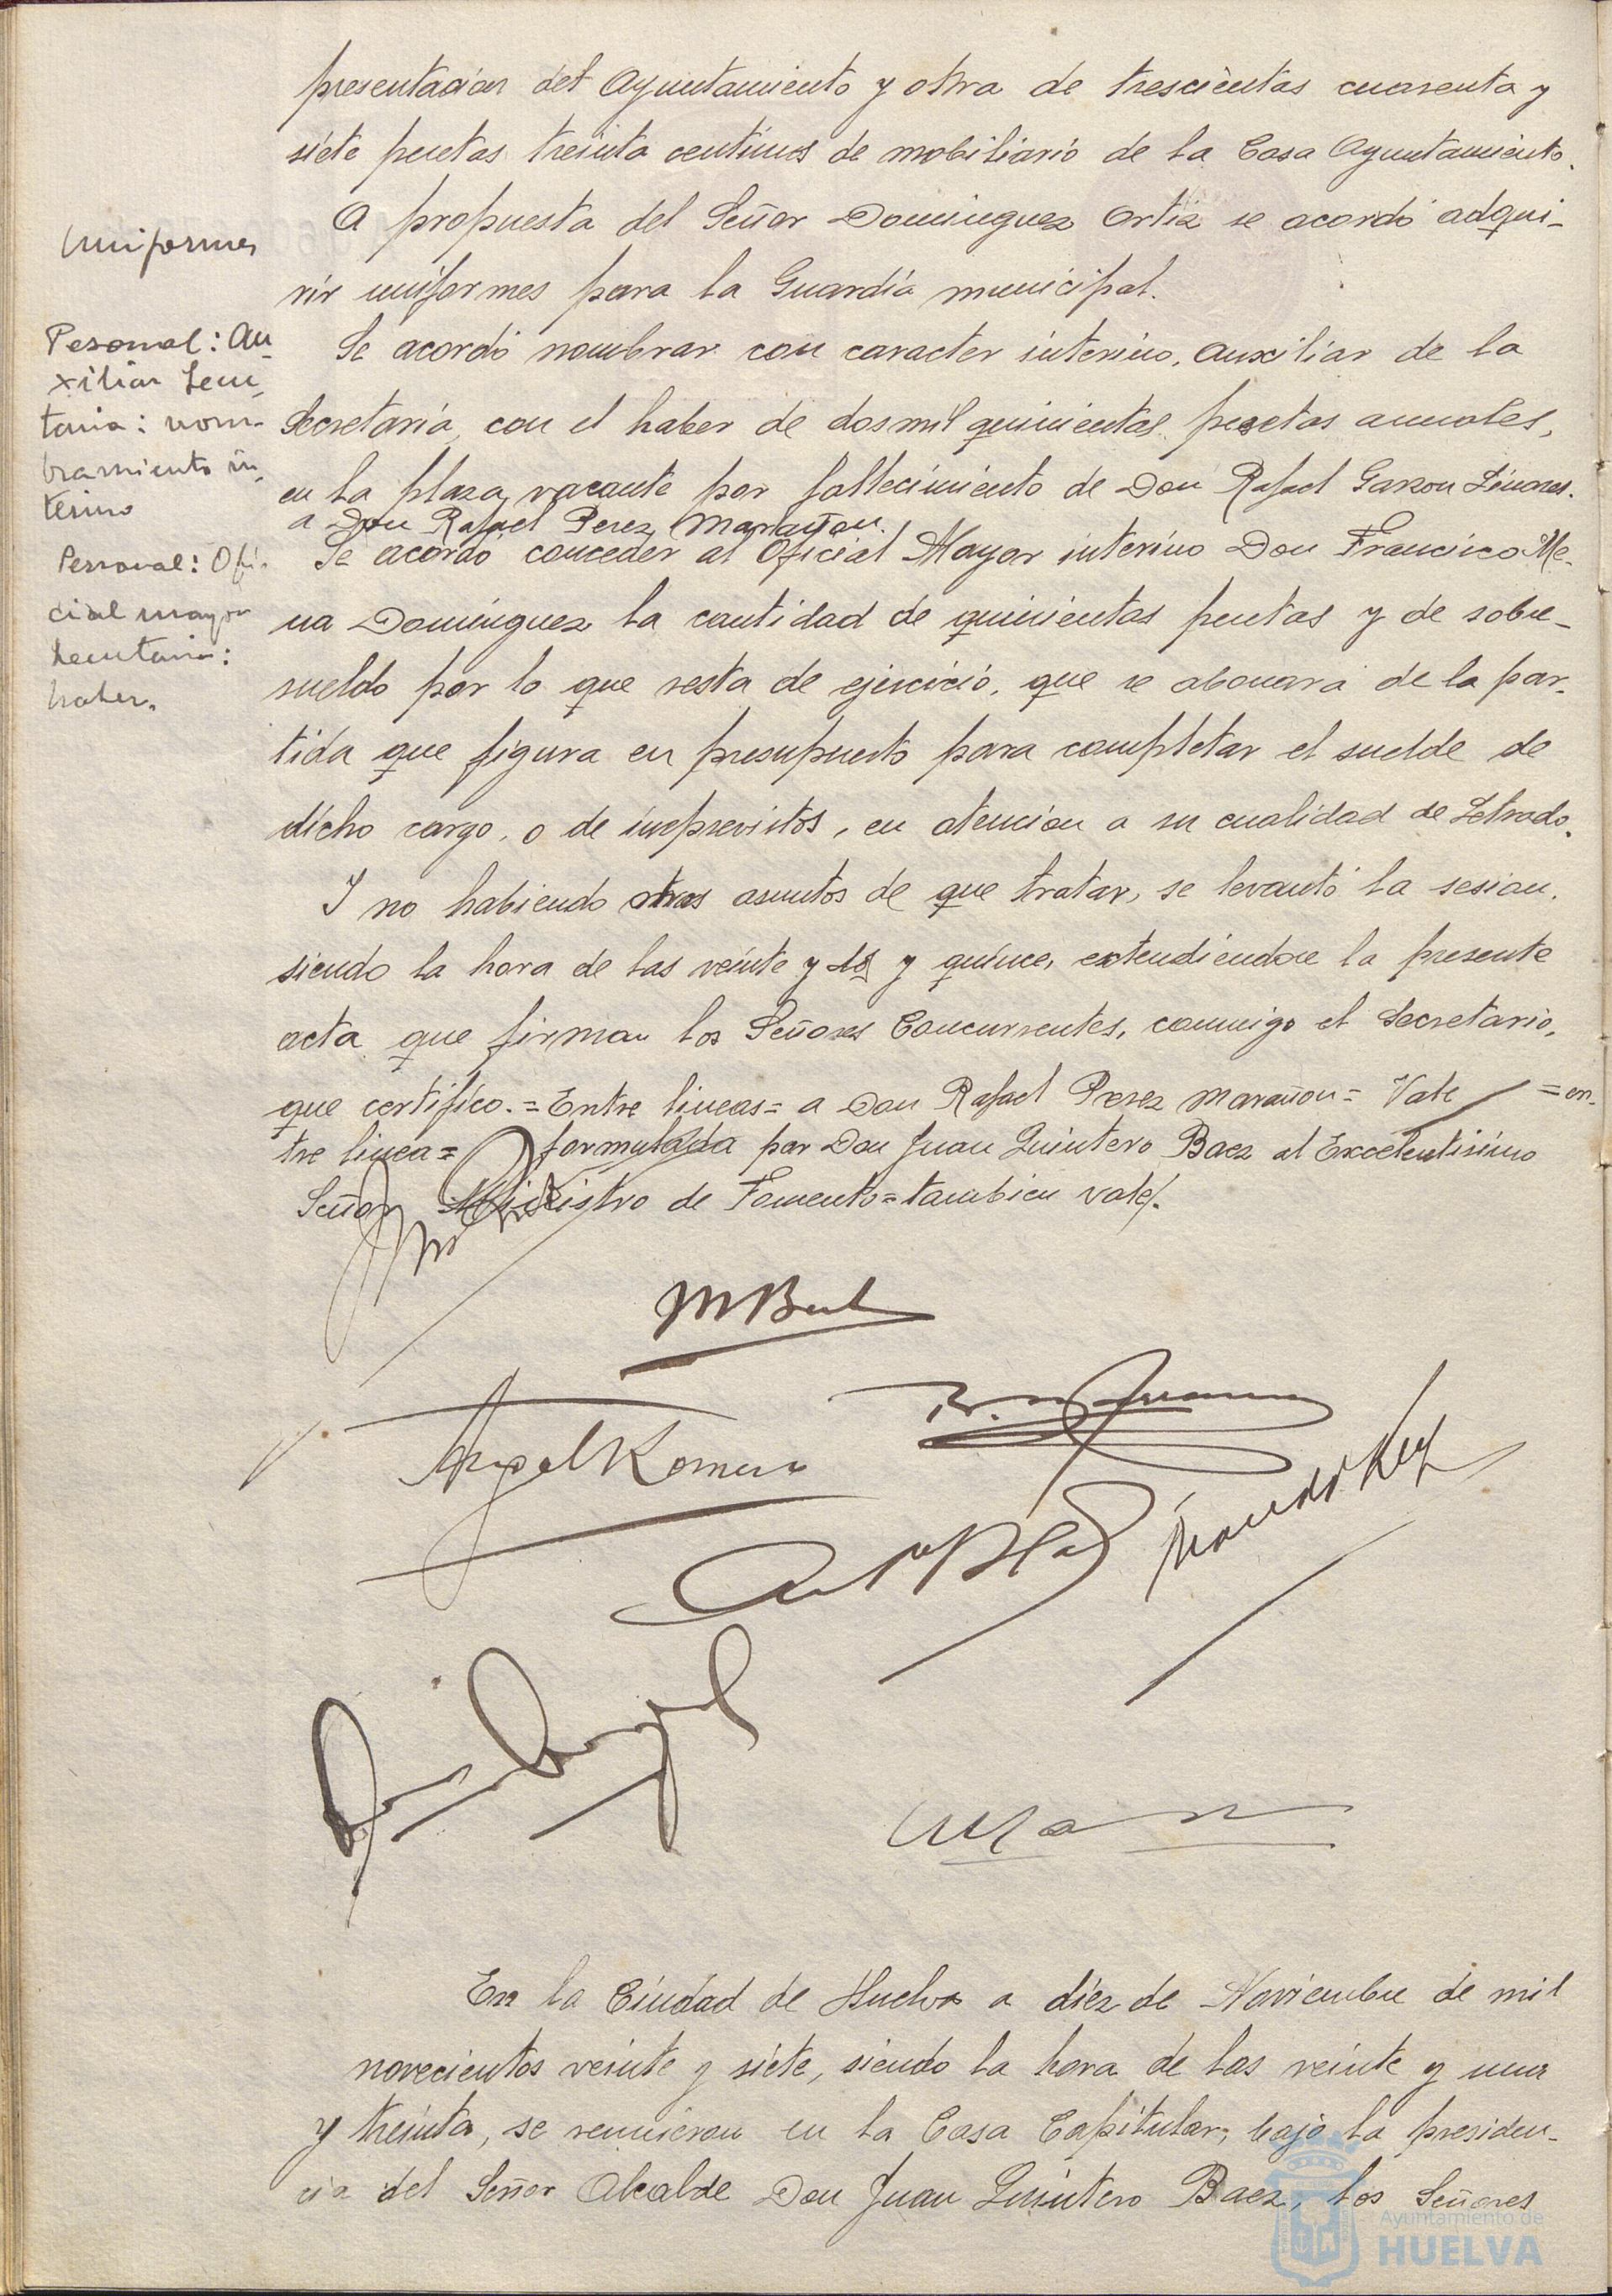 presentacion del Ayuntamiento y otra de trescientas cuarenta y
siete pesetas treinta centimos de mobiliario de la Casa Ayuntamiento.
Uniformes
A propuesta del Señor Dominguez Ortiz se acordó adqui-
rir uniformes para la Guardia municipal.
Pesonal: Au-
xiliar Secre-
taria: nom-
bramiento in-
terino
Se acordó nombrar con caracter interino, Auxiliar de la
Secretaria, con el haber de dos mil quinientas pesetas anuales,
en la plaza, vacante por fallecimiento de Don Rafael Garzon Linares.
a Don Rafael Perez Marañon.
Personal: Ofi-
cial mayor
secretaria:
haber.
Se acordó conceder al Oficial Mayor interino Don Francisco Me-
na Dominguez la cantidad de quinientas pesetas y de sobre-
sueldo por lo que resta de ejercicio, que se abonará de la par-
tida que figura en presupuesto para completar el sueldo de
dicho cargo, o de imprevistos, en atencion a su cualidad de Letrado.
Y no habiendo otros asuntos de que tratar, se levantó la sesion,
siendo la hora de las veinte y dos y quince, extendiendose la presente
acta que firman los Señores Concurrentes, conmigo el Secretario,
que certifico.=Entre lineas= a Don Rafael Perez Marañon= Vale =en-
tre linea= formulada por Don Juan Quintero Baez al Excelentisimo
Señor Ministro de Fomento=tambien vale.
Angel Romero
En la Ciudad de Huelva a diez de Noviembre de mil
novecientos veinte y siete, siendo la hora de las veinte y una
y treinta, se reunieron en la Casa Capitular, bajo la presiden-
cia del Señor Alcalde Don Juan Quintero Baez, los Señores
Ayuntamiento de
HUELVA